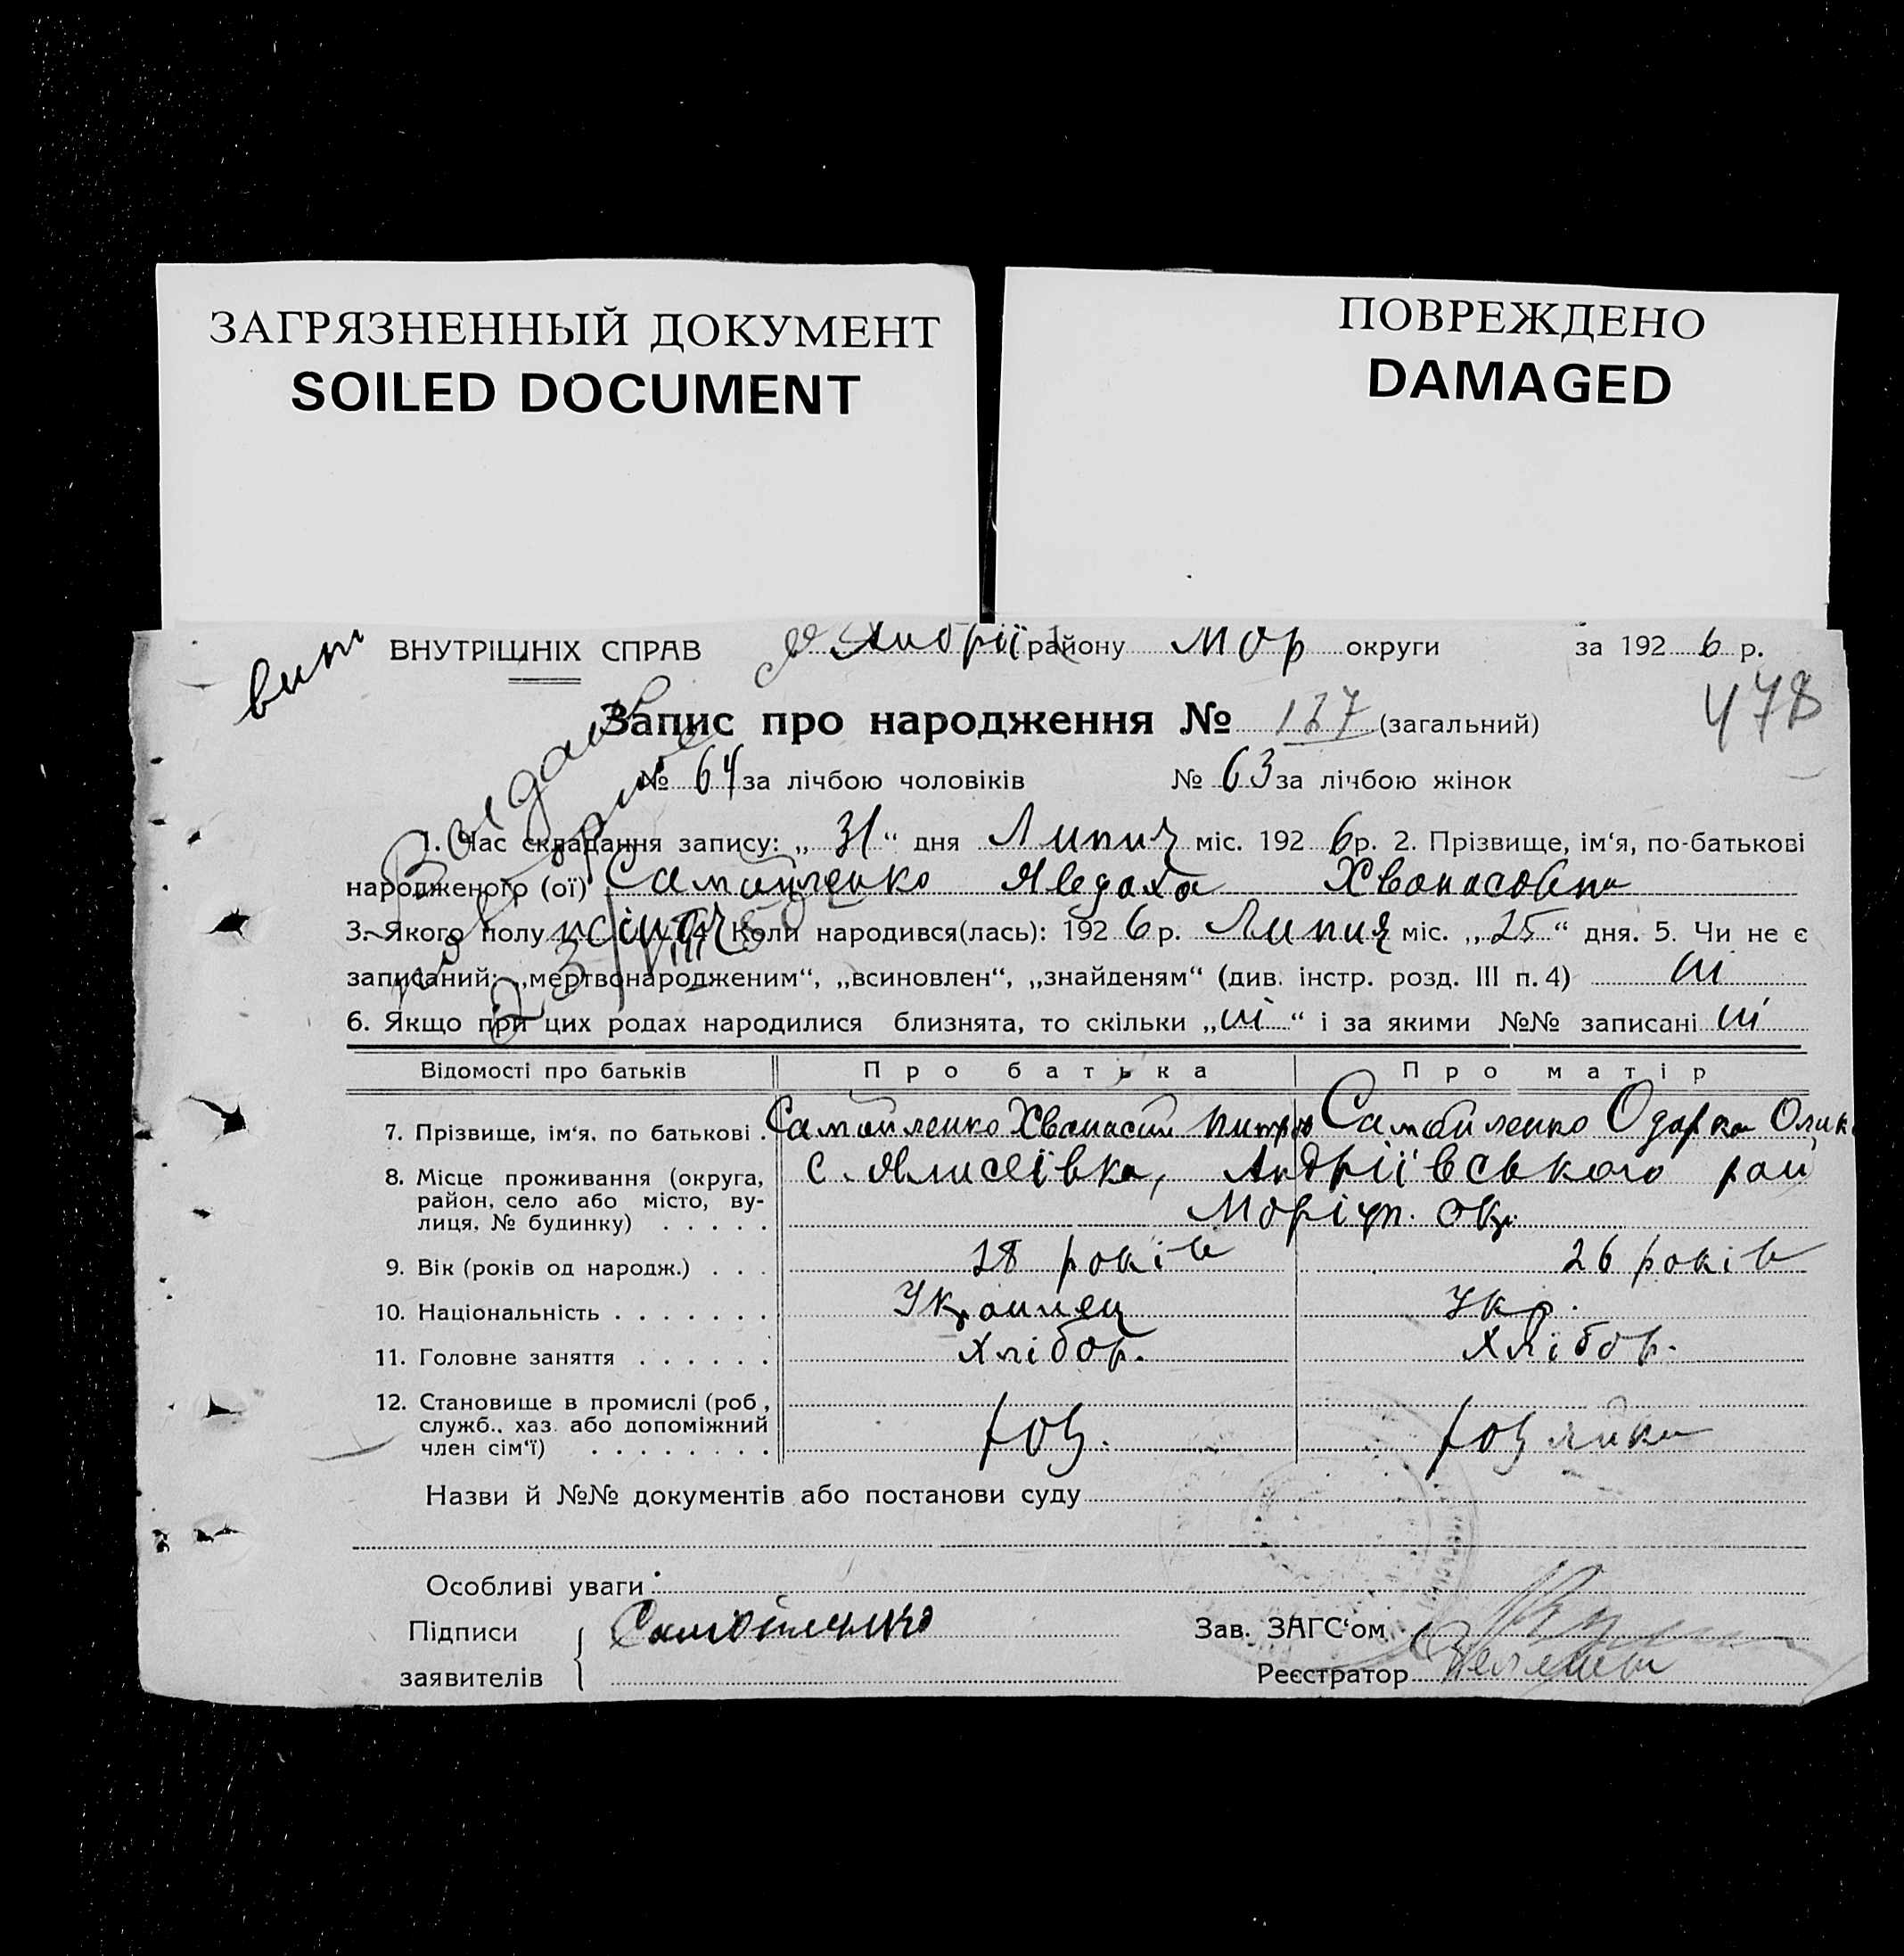 ЗАГРЯЗНЕННЫЙ ДОКУМЕНТ
SOILED DOCUMENT
ПОВРЕЖДЕНО
DAMAGED
вип
ВНУТРІШНІХ СПРАВ Андрії району Мор округи за 1926 р.
478
Запис про народження № 127 (загальний)
№ 64 за лічбою чоловіків № 63 за лічбою жінок
1. Час складання запису: „ 31 “ дня Липня міс. 1926 р. 2. Прізвище, ім‘я, по-батькові
народженого (ої) Самойленко Явдоха Хванасовна
3. Якого полу жіноч 4. Коли народився(лась): 1926 р. Липня міс. „ 25 “ дня. 5. Чи не є
записаний: „мертвонародженим“, „всиновлен“, „знайденям“ (див. інстр. розд. III п. 4) ні
6. Якщо при цих родах народилися близнята, то скільки „ ні “ і за якими №№ записані ні
Відомості про батьків Про батька Про матір
7. Прізвище, ім‘я, по батькові . Самойленко Хванасий Самойленко Одарка
8. Місце проживання (округа, с. Андріївського рай
район, село або місто, ву-
лиця, № будинку) . . . . . Маріуп. окр.
9. Вік (років од народж.) . . . 28 років 26 років
10. Національність . . . . . . . Украинец Укр.
11. Головне заняття . . . . . . Хлібор. Хлібор.
12. Становище в промислі (роб.,
служб., хаз. або допоміжний
член сім‘ї) . . . . . . . .
Назви й №№ документів або постанови суду
Особливі уваги
Підписи Самойленко Зав. ЗАГС‘ом
заявителів Реєстратор